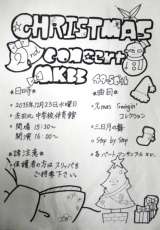 CHRISTMAS
2nd
concert
日時
2015年12月23日水曜日
中学校体育館
開場 15:30〜
開演 16:00〜
諸注意
保護者の方はスリッパを
ご持参下さい
曲目
X'mas Swingin'
コレクション
三日月の舞
Step by Step
各パートアンサンブル etc.